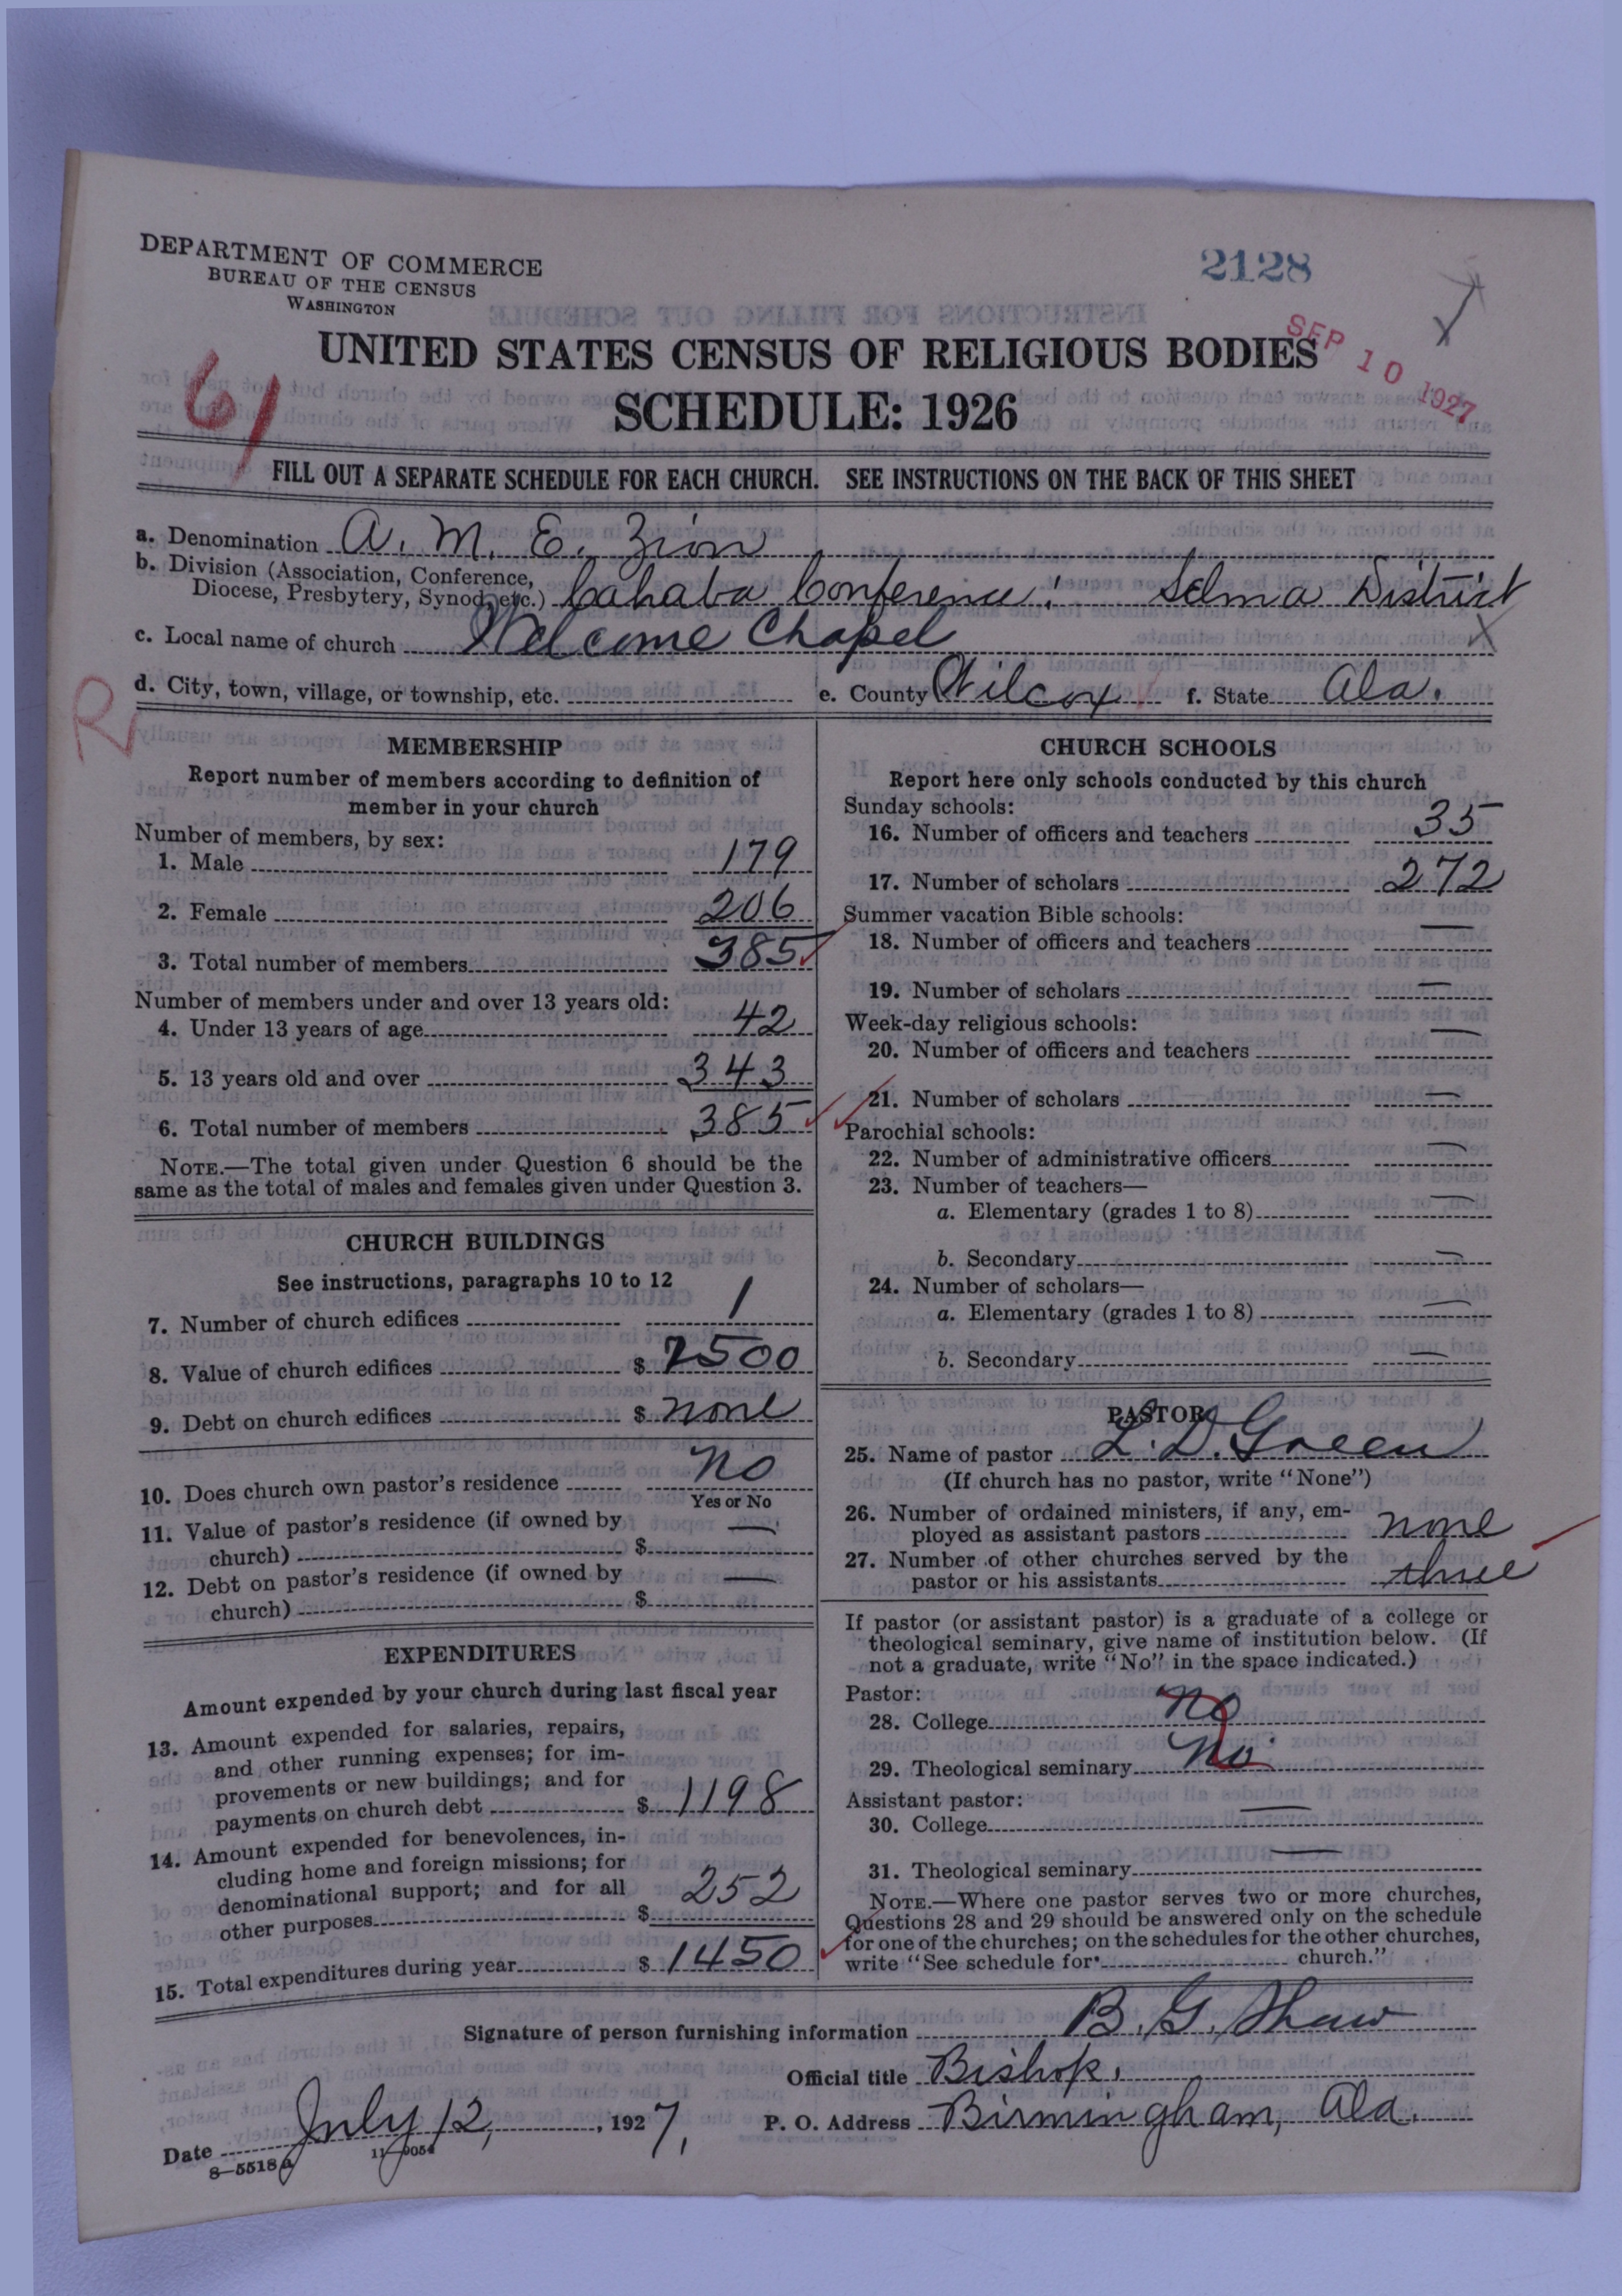 DEPARTMENT OF COMMERCE
BUREAU OF THE CENSUS
WASHINGTON
2128
SEP 10 1927
UNITED STATES CENSUS OF RELIGIOUS BODIES
SCHEDULE: 1926
61
FILL OUT A SEPARATE SCHEDULE FOR EACH CHURCH. SEE INSTRUCTIONS ON THE BACK OF THIS SHEET
a. Denomination A. M. E. Zion
b. Division (Association, Conference,
Diocese, Presbytery, Synod, etc.) Cahaba Conference: Selma District
c. Local name of church Welcome Chapel X
R
d. City, town, village, or township, etc. e. County Wilcox f. State Ala.
MEMBERSHIP
Report number of members according to definition of
member in your church
Number of members, by sex:
1. Male 179
2. Female 206
3. Total number of members 385
Number of members under and over 13 years old:
4. Under 13 years of age 42
5. 13 years old and over 343
6. Total number of members 385
NOTE.—The total given under Question 6 should be the
same as the total of males and females given under Question 3.
CHURCH BUILDINGS
See instructions, paragraphs 10 to 12
7. Number of church edifices 1
8. Value of church edifices $ 2500
9. Debt on church edifices $ none
10. Does church own pastor's residence No
Yes or No
11. Value of pastor's residence (if owned by
church) $ —
12. Debt on pastor's residence (if owned by
church) $ —
EXPENDITURES
Amount expended by your church during last fiscal year
13. Amount expended for salaries, repairs,
and other running expenses; for im-
provements or new buildings; and for
payments on church debt $ 1198
14. Amount expended for benevolences, in-
cluding home and foreign missions; for
denominational support; and for all
other purposes $ 252
15. Total expenditures during year $ 1450
CHURCH SCHOOLS
Report here only schools conducted by this church
Sunday schools:
16. Number of officers and teachers 35
17. Number of scholars 272
Summer vacation Bible schools:
18. Number of officers and teachers —
19. Number of scholars —
Week-day religious schools:
20. Number of officers and teachers —
21. Number of scholars —
Parochial schools:
22. Number of administrative officers —
23. Number of teachers—
a. Elementary (grades 1 to 8) —
b. Secondary —
24. Number of scholars—
a. Elementary (grades 1 to 8) —
b. Secondary —
PASTOR
25. Name of pastor L. D. Green
(If church has no pastor, write "None")
26. Number of ordained ministers, if any, em-
ployed as assistant pastors none
27. Number of other churches served by the
pastor or his assistants three
If pastor (or assistant pastor) is a graduate of a college or
theological seminary, give name of institution below. (If
not a graduate, write "No" in the space indicated.)
Pastor:
28. College no
29. Theological seminary no
Assistant pastor:
30. College —
31. Theological seminary —
NOTE.—Where one pastor serves two or more churches,
Questions 28 and 29 should be answered only on the schedule
for one of the churches; on the schedules for the other churches,
write "See schedule for church."
Signature of person furnishing information B. G. Shaw
Official title Bishop.
Date July 12, 1927, P. O. Address Birmingham, Ala.
8—5518a 11—9054